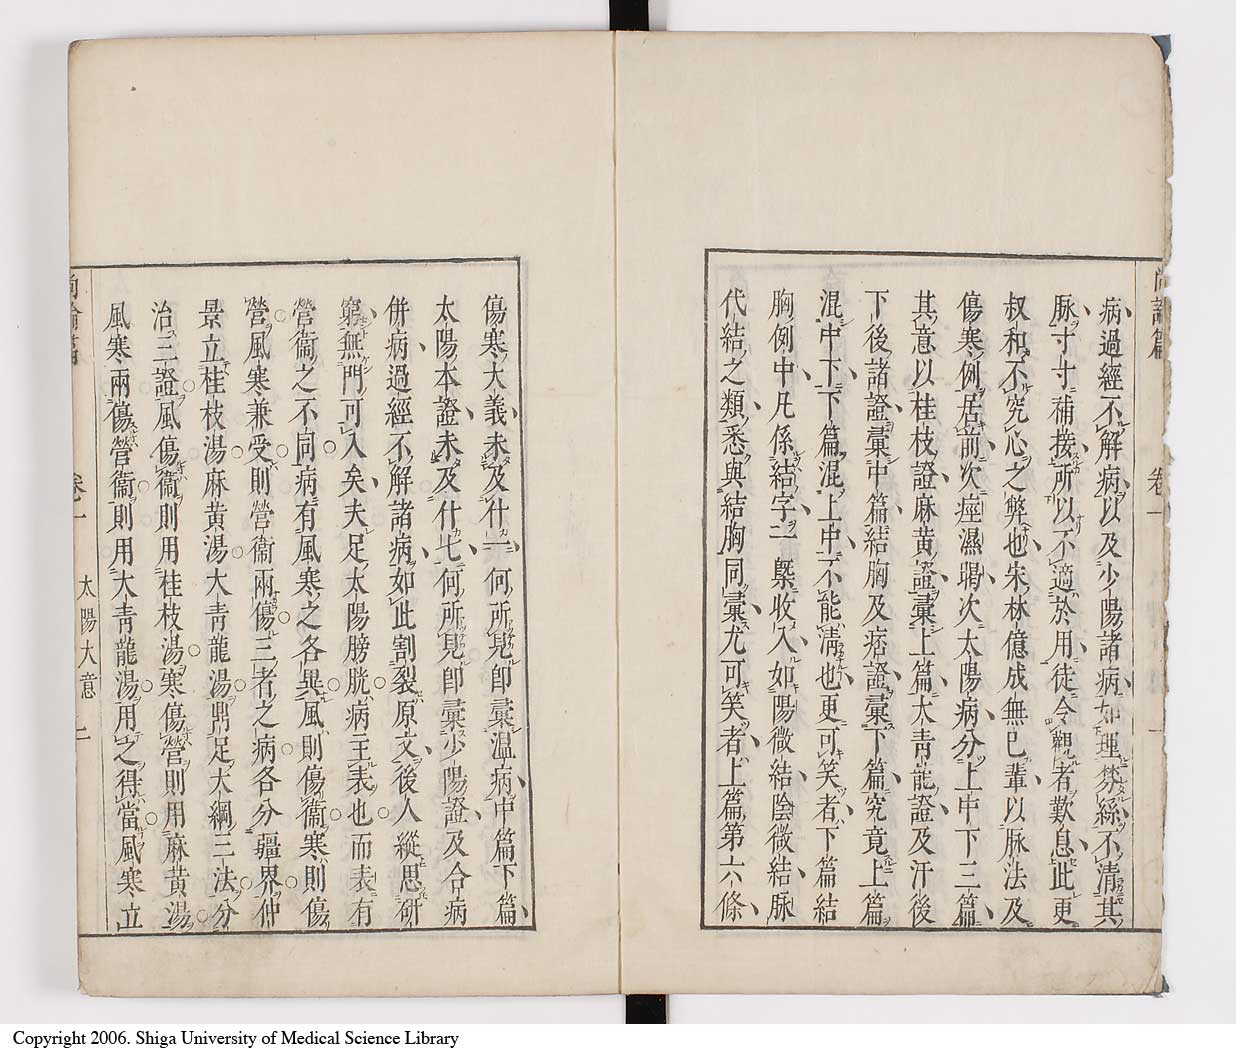 病過經不解病以及少陽諸病如理棼絲不清其
脉寸寸補接所以不適於用徒令觀者歎息此更
叔和不究心之弊也宋林億成無已輩以脉法及
傷寒例居前次痙濕暍次太陽病分上中下三篇
其意以桂枝證麻黃證彙上篇大青龍證及汗後
下後諸證彙中篇結胸及痞證彙下篇究竟上篇
混中下下篇混上中不能清也更可笑者下篇結
胸例中凡係結字一槩收入如陽微結陰微結脉
代結之類悉與結胸同彙尤可笑者上篇第六條
傷寒大義未及什一何所見即彙溫病中篇下篇
太陽本證未及什七何所見即彙少陽證及合病
併病過經不解諸病如此割裂原文後人縱思研
窮無門可入矣夫足太陽膀胱病主表也而表有
營衞之不同病有風寒之各異風則傷衞寒則傷
營風寒兼受則營衞兩傷三者之病各分疆界仲
景立桂枝湯麻黃湯大青龍湯鼎足大綱三法分
治三證風傷衞則用桂枝湯寒傷營則用麻黃湯
風寒兩傷營衞則用大青龍湯用之得當風寒立
尚論篇 卷一 太陽大意 二
Copyright 2006. Shiga University of Medical Science Library